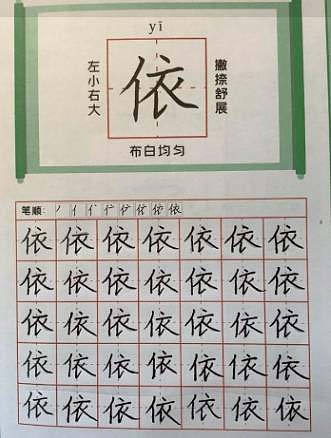 yī
左小右大
依
撇捺舒展
布白均匀
笔顺: 丿 亻 亻 伫 伫 依 依 依
依 依 依 依 依 依 依
依 依 依 依 依 依 依
依 依 依 依 依 依 依
依 依 依 依 依 依 依
依 依 依 依 依 依 依